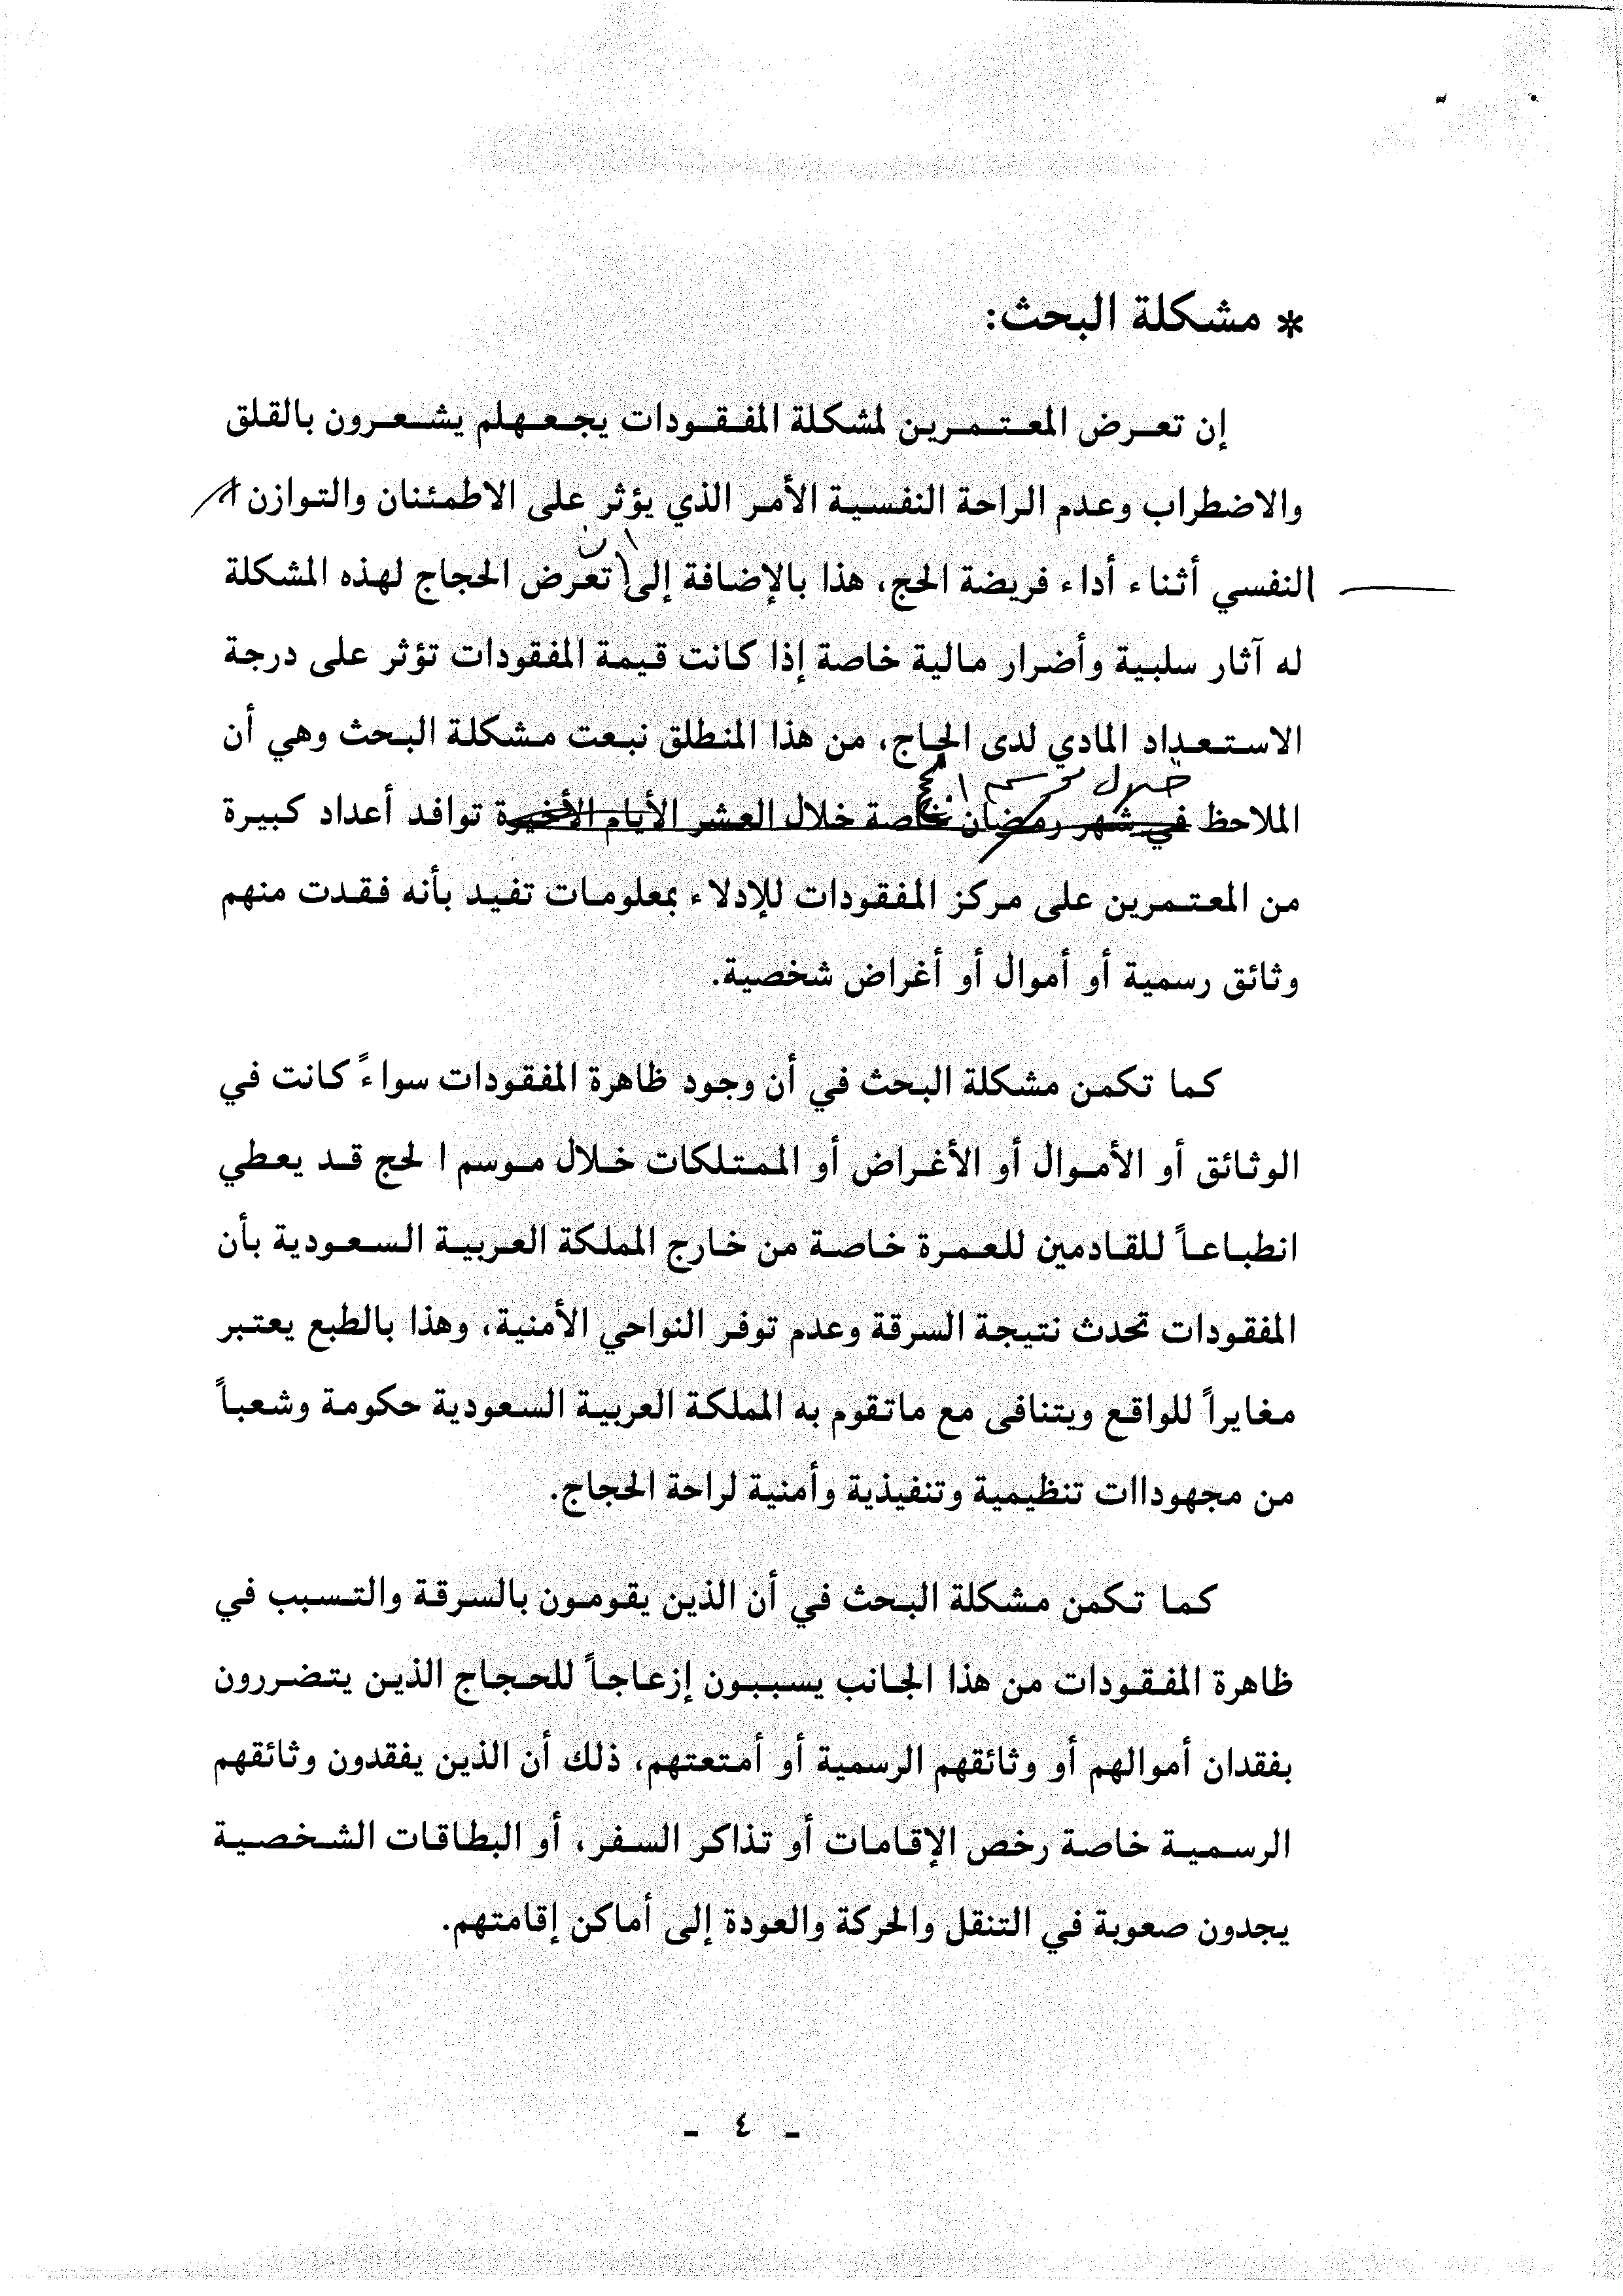 * مشكلة البحث:
إن تعرض المعتمرين لمشكلة المفقودات يجعهلم يشعرون بالقلق
والاضطراب وعدم الراحة النفسية الأمر الذي يؤثر على الاطمئنان والتوازن
النفسي أثناء أداء فريضة الحج، هذا بالإضافة إلى أن تعرض الحجاج لهذه المشكلة
له آثار سلبية وأضرار مالية خاصة إذا كانت قيمة المفقودات تؤثر على درجة
الاستعداد المادي لدى الحاج، من هذا المنطلق نبعت مشكلة البحث وهي أن
خلال موسم الحج
الملاحظ في شهر رمضان خاصة خلال العشر الأيام الأخيرة توافد أعداد كبيرة
من المعتمرين على مركز المفقودات للإدلاء بمعلومات تفيد بأنه فقدت منهم
وثائق رسمية أو أموال أو أغراض شخصية.
كما تكمن مشكلة البحث في أن وجود ظاهرة المفقودات سواءً كانت في
الوثائق أو الأموال أو الأغراض أو الممتلكات خلال موسم ا لحج قد يعطي
انطباعاً للقادمين للعمرة خاصة من خارج المملكة العربية السعودية بأن
المفقودات تحدث نتيجة السرقة وعدم توفر النواحي الأمنية، وهذا بالطبع يعتبر
مغايراً للواقع ويتنافى مع ماتقوم به المملكة العربية السعودية حكومة وشعباً
من مجهوداات تنظيمية وتنفيذية وأمنية لراحة الحجاج.
كما تكمن مشكلة البحث في أن الذين يقومون بالسرقة والتسبب في
ظاهرة المفقودات من هذا الجانب يسببون إزعاجاً للحجاج الذين يتضررون
بفقدان أموالهم أو وثائقهم الرسمية أو أمتعتهم، ذلك أن الذين يفقدون وثائقهم
الرسمية خاصة رخص الإقامات أو تذاكر السفر، أو البطاقات الشخصية
يجدون صعوبة في التنقل والحركة والعودة إلى أماكن إقامتهم.
- ٤ -